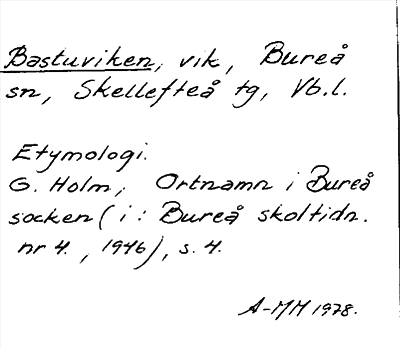 Bastuviken, vik, Bureå
sn, Skellefteå tg, Vb.l.
Etymologi.
G. Holm, Ortnamn i Bureå
socken (i: Bureå skoltidn.
nr 4., 1946), s. 4.
A-MM 1978.